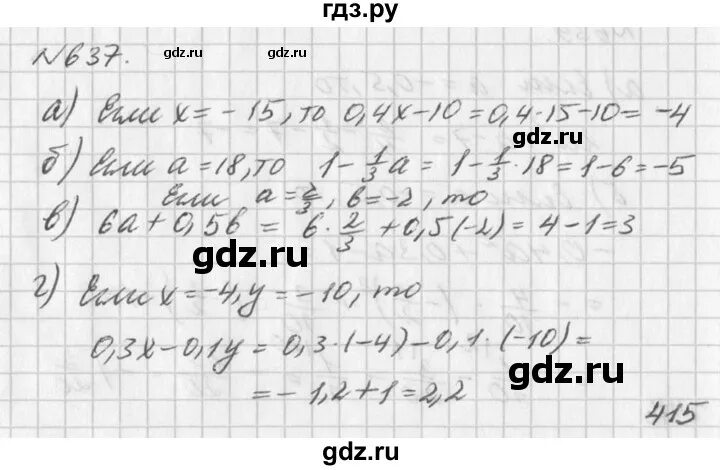 гдз.ру
№637. gdz.ru gdz.ru
а) Если x = -15, то 0,4x-10 = 0,4·15-10 = -4
gdz.ru
б) Если a = 18, то 1 - 1/3 a = 1 - 1/3 · 18 = 1-6 = -5
Если a = 2/3, b = -2, то
в) 6a + 0,5b = 6 · 2/3 + 0,5(-2) = 4-1 = 3
gdz.ru gdz.ru
г) Если x = -4, y = -10, то
0,3x-0,1y = 0,3·(-4)-0,1·(-10) =
gdz.ru gdz.ru
= -1,2+1 = 2,2
415
gdz.ru
gdz.ru